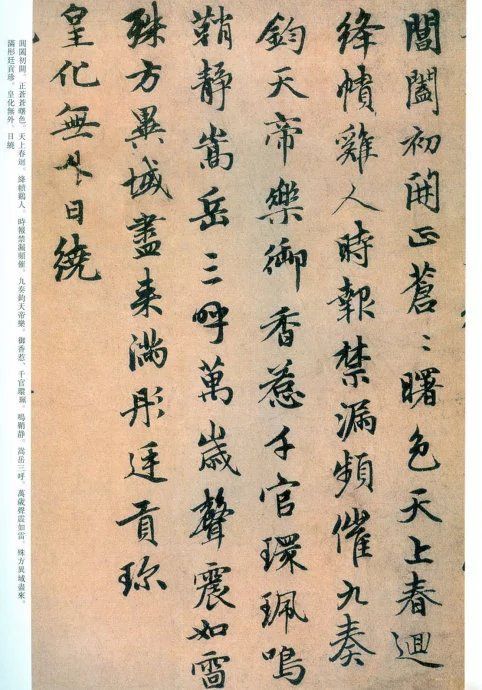 閶闔初開正蒼〻曙色天上春迴
絳幘雞人時報禁漏頻催九奏
鈞天帝樂御香惹千官環珮鳴
鞘靜嵩岳三呼萬歲聲震如雷
殊方異域盡来滿彤廷貢珎
皇化無外日繞
閶闔初開。正蒼蒼曙色。天上春迴。絳幘鷄人。時報禁漏頻催。九奏鈞天帝樂。御香惹、千官環珮。鳴鞘静。嵩岳三呼。萬歲聲震如雷。殊方異域盡來。
滿彤廷貢珍。皇化無外。日繞